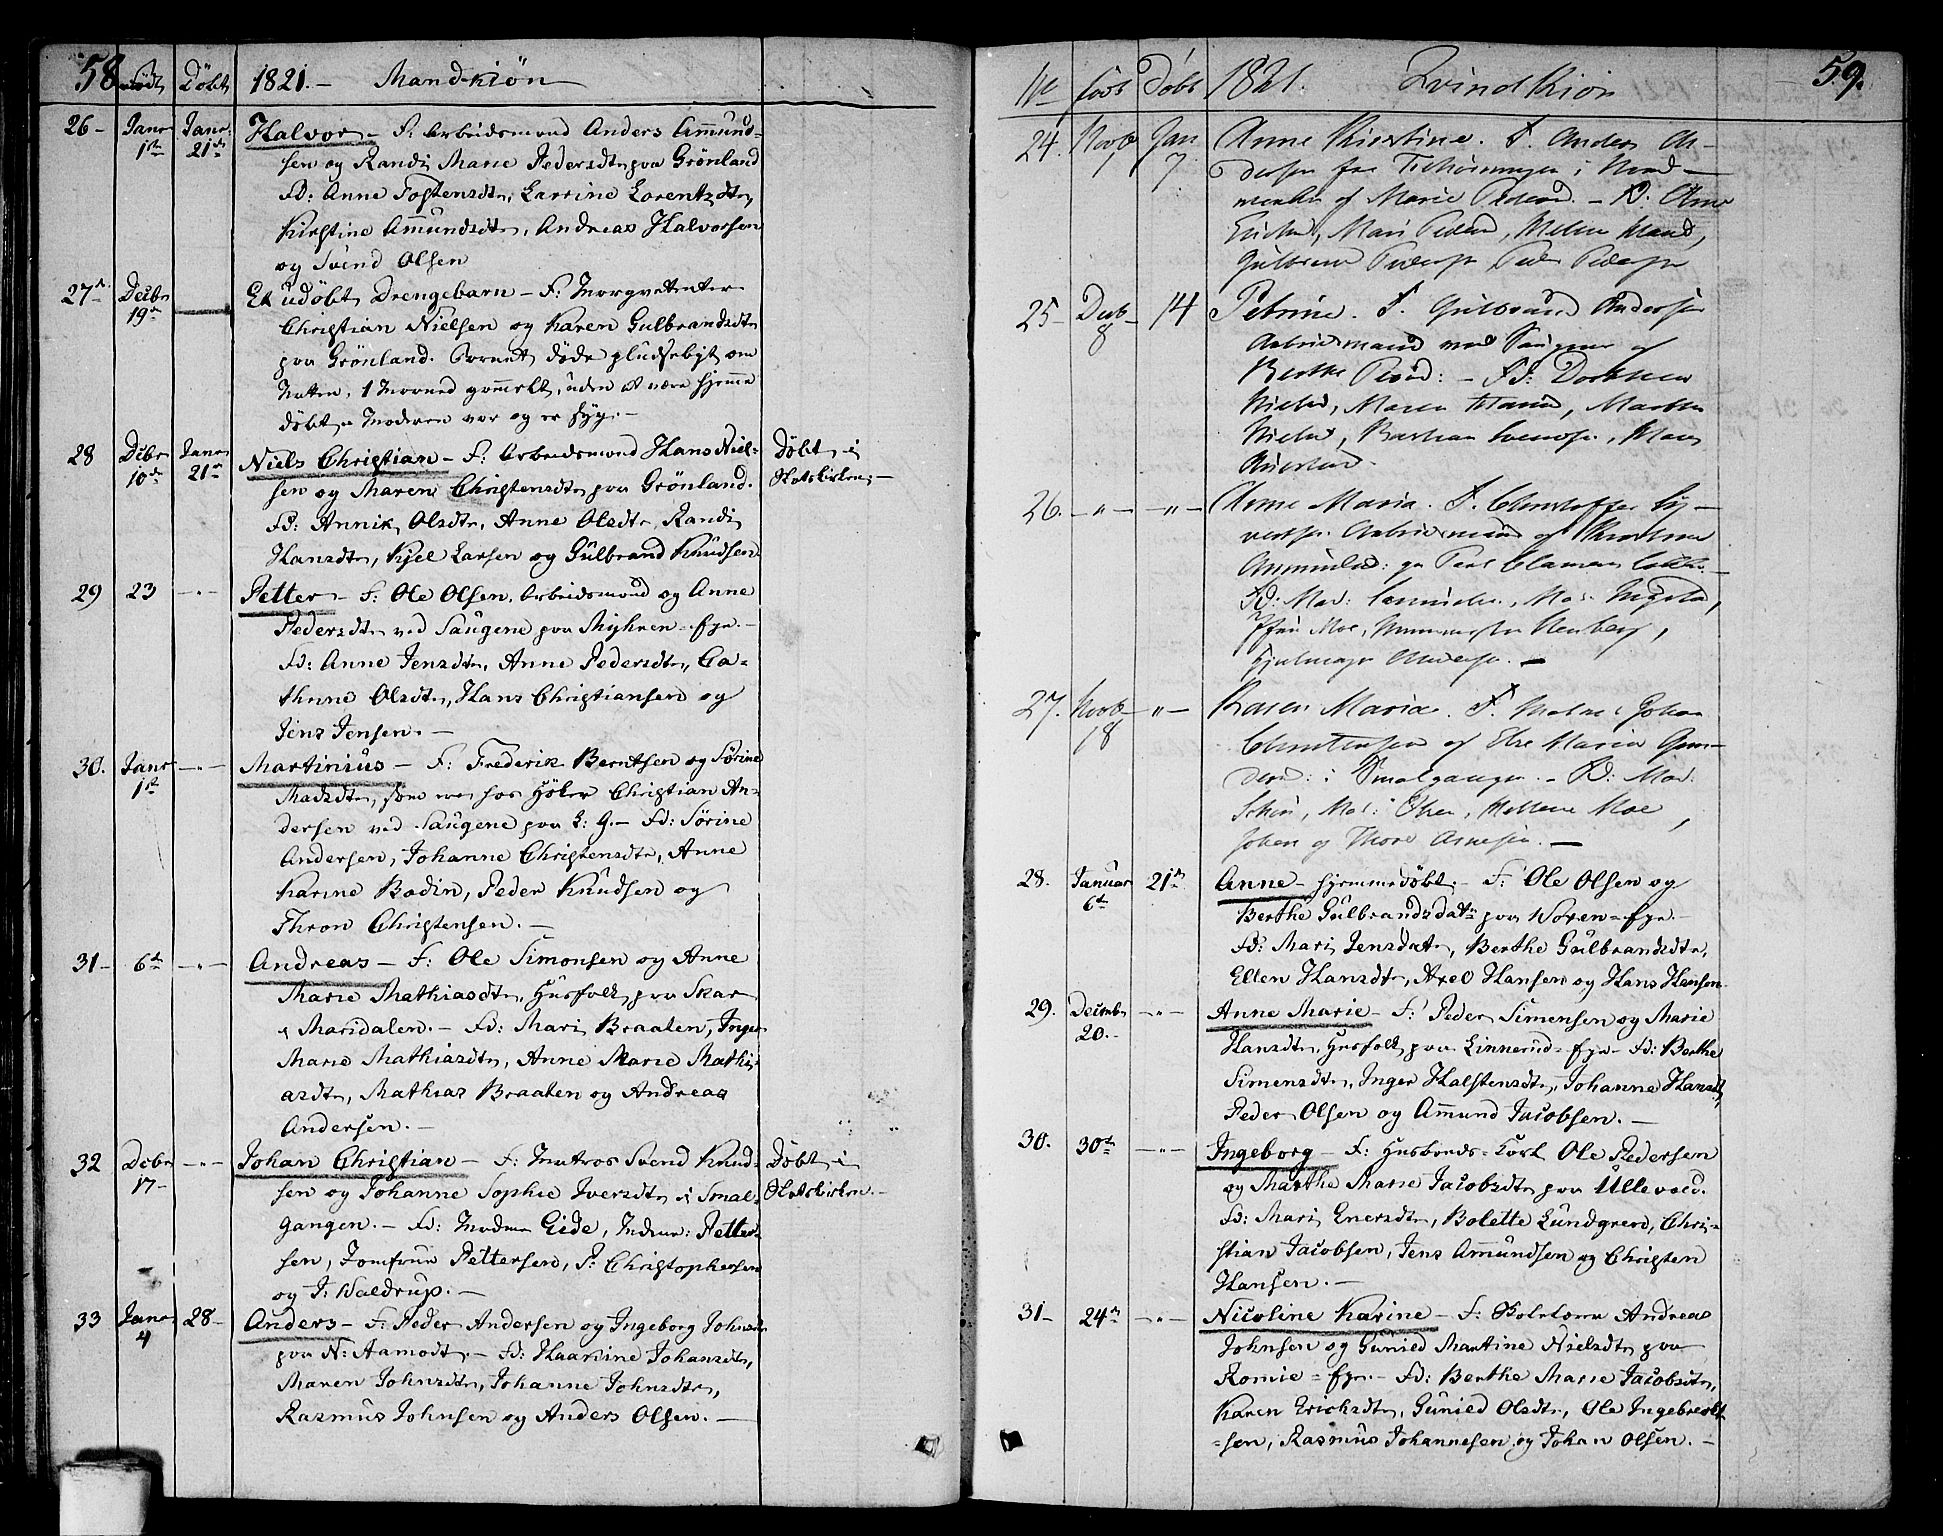 58 født Döbt 1821. – Mandkiön
26 – Janr 1ste Janr 21de Halvor – F: Arbeidsmand Anders Amund-
sen og Randi Marie Pedersdtr paa Grönland
Fd: Anne Tostensdtr, Larrine Lorentzdtr,
Kirstine Amundsdtr, Andreas Halvorsen
og Svend Olsen
27 Decbr 19de Et udöbt Drengebarn – F:
Christian Nielsen og Karen Gulbrandsdtr
paa Grönland. Barnet döde pludseligt om
Natten, 1 Maaned gammelt, uden at være hjemme
döbt Moderen var og er syg. –
28 Decbr 10de Janr 21de Niels Christian – F: Arbeidsmand Hans Niel- Döbt i
sen og Maren Christensdtr paa Grönland. Slotskirken. –
Fd: Annik Olsdtr, Anne Olsdtr, Randi
Hansdtr, Kjel Larsen og Gulbrand Knudsen
29 23 – " – Petter – F: Ole Olsen, Arbeidsmand og Anne
Pedersdtr ved Saugene paa Myhren – Eyr. –
Fd: Anne Jensdtr, Anne Pedersdtr, Ca-
thrine Olsdtr, Hans Christiansen og
Jens Jensen. –
30. Janr 1ste – " – Martinius – F: Frederik Berntsen og Sörine
Madsdtr, som er hos Höker Christian An-
dersen ved Saugene paa E: g. – Fd: Sörine
Andersen, Johanne Christensdtr, Anne
Karine Bodin, Peder Knudsen og
Thron Christensen. –
31 – 6te – " – Andreas – F: Ole Simonsen og Anne
Marie Mathiasdtr, Husfolk paa Skar
i Maridalen. – Fd: Mari Braaten, Inger
Marie Mathiasdtr, Anne Marie Mathi-
asdtr, Mathias Braaten og Andreas
Andersen. –
32 Decbr 17 – – " – Johan Christian – F: Matros Svend Knud- Döbt i
sen og Johanne Sophie Iversdtr i Smal- Slotskirken. –
gangen. – Fd: Madme Eide, Madme: Petter-
sen, Jomfrue Pettersen, P: Christophersen
og J: Waldrup. –
33 Janr 4 28 – Anders – F: Peder Andersen og Ingeborg Johnsdtr
paa N: Aamodt. – Fd: Johansdtr,
Maren Johnsdtr, Johanne Johnsdtr,
Rasmus Johnsen og Anders Olsen. –
No född Döbt 1821. Qvindkiön 59.
24. Novb 1 Jan 7. Anne Kirstine. F. Anders An-
dersen fra i Nord-
marken og Marie Pedersd. – Fd:
Mari Pedersd,
Gulbrand Pedersen Peder Pedersen
25 – Decb 8 14 Petrine. F. Gulbrand Andersen
Arbeidsmand ved Saugene og
Berthe Pedersd: – Fd: Dorthea
Nielsd, Maren Marthe
Nielsd, Bastian Svendsen,
26. – " – – " – Anne Maria. F. Christoffer Sy-
versen Arbeidsmand og
Fd: Mad:
Moe,
27. Novb 18 " – Karen Maria. F. Johan
Christensen og Else Maria Gun-
dersd: i Smalgangen. – Fd: Mad.
Mad: Olsen, Moe,
Johan og Thore Arnesen. –
28. Januar 6te 21de Anne – hjemmedöbt. – F: Ole Olsen og
Berthe Gulbrandsdatr paa Voxen – Eyr. –
Fd: Mari Jensdatr, Berthe Gulbrandsdtr,
Ellen Hansdtr, Axel Hansen og Hans Hansen
29. Decembr 20. – – " – Anne Marie – F: Peder Simensen og Marie
Hansdtr, Husfolk paa Linnerud – Eyr – Fd: Berthe
Simensdtr, Inger Halstensdtr, Johanne Hansdtr,
Peder Olsen og Amund Jacobsen. –
30. 30te – " – Ingeborg – F: Husbonds-Karl Ole Pedersen
og Marthe Marie Jacobsdtr paa Ullevold.
Fd: Mari Enersdtr, Bolette Lundgren, Chri-
stian Jacobsen, Jens Amundsen og Christen
Hansen. –
31 – 24de – " – Nicoline Karine – F: Andreas
Johnsen og Gunied Martine Nielsdtr paa
Romie – Eyr. – Fd: Berthe Marie Jacobsdtr,
Karen Ericksdtr, Gunied Olsdtr, Ole Ingebrekt-
sen, Rasmus Johannesen og Johan Olsen. –